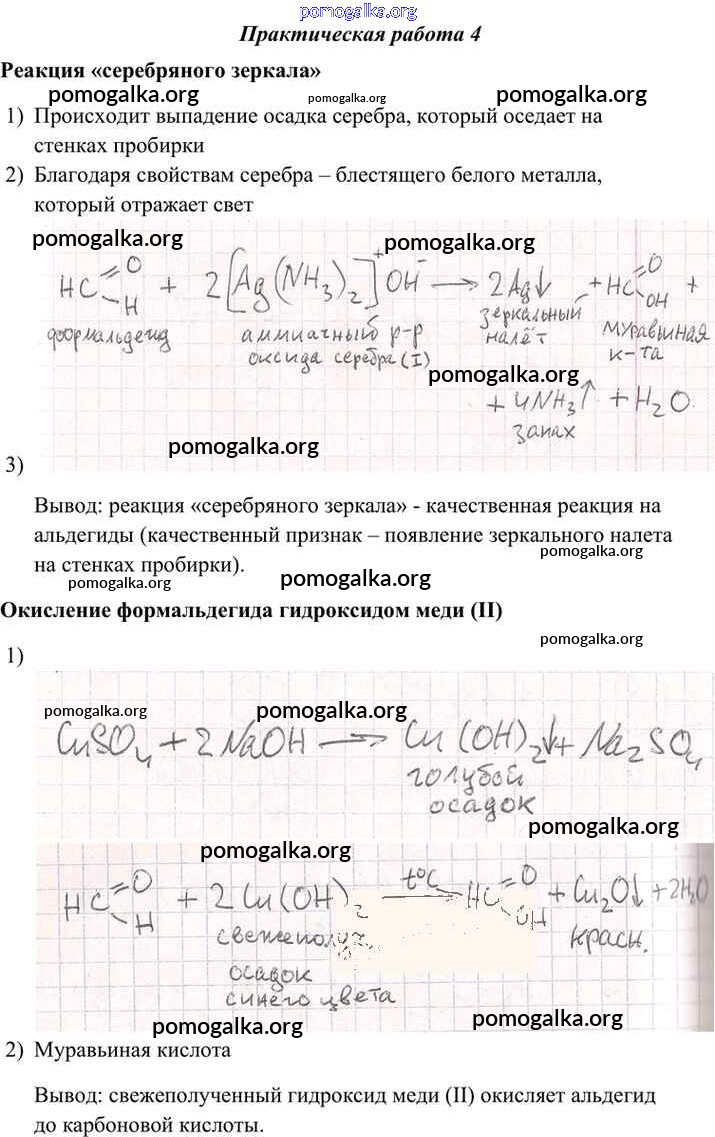 pomogalka.org
Практическая работа 4
Реакция «серебряного зеркала»
pomogalka.org pomogalka.org pomogalka.org
1) Происходит выпадение осадка серебра, который оседает на
стенках пробирки
2) Благодаря свойствам серебра – блестящего белого металла,
который отражает свет
pomogalka.org pomogalka.org
HC=O H + 2[Ag(NH3)2]+OH- → 2Ag↓ + HC=O OH +
формальдегид аммиачный р-р оксида серебра (I) зеркальный налёт муравьиная к-та
pomogalka.org
+ 4NH3↑ + H2O
запах
pomogalka.org
3)
Вывод: реакция «серебряного зеркала» - качественная реакция на
альдегиды (качественный признак – появление зеркального налета
pomogalka.org
на стенках пробирки).
pomogalka.org pomogalka.org
Окисление формальдегида гидроксидом меди (II)
pomogalka.org
1)
pomogalka.org pomogalka.org
CuSO4 + 2NaOH → Cu(OH)2↓ + Na2SO4
голубой
осадок
pomogalka.org
pomogalka.org
HC=O H + 2Cu(OH)2 t°C → HC=O OH + Cu2O↓ + 2H2O
свежеполуч. красн.
осадок
синего цвета
pomogalka.org pomogalka.org
2) Муравьиная кислота
Вывод: свежеполученный гидроксид меди (II) окисляет альдегид
до карбоновой кислоты.